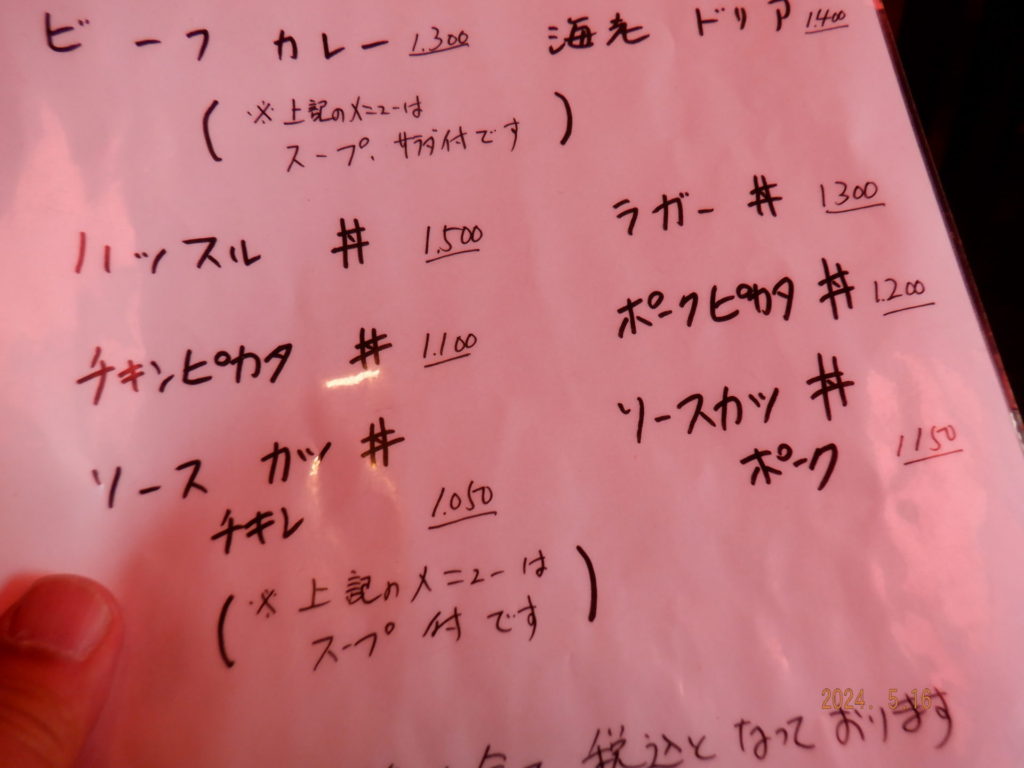 ビーフ カレー 1.300 海老 ドリア 1.400
(※上記のメニューは
スープ、サラダ付です)
ハッスル 丼 1.500
ラガー 丼 1300
チキンピカタ 丼 1.100
ポークピカタ 丼 1.200
ソース カツ 丼
チキン 1.050
ソースカツ 丼
ポーク 1150
(※上記のメニューは
スープ付です)
税込となっております
2024. 5.16